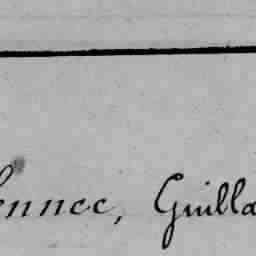 ennec, Guilla